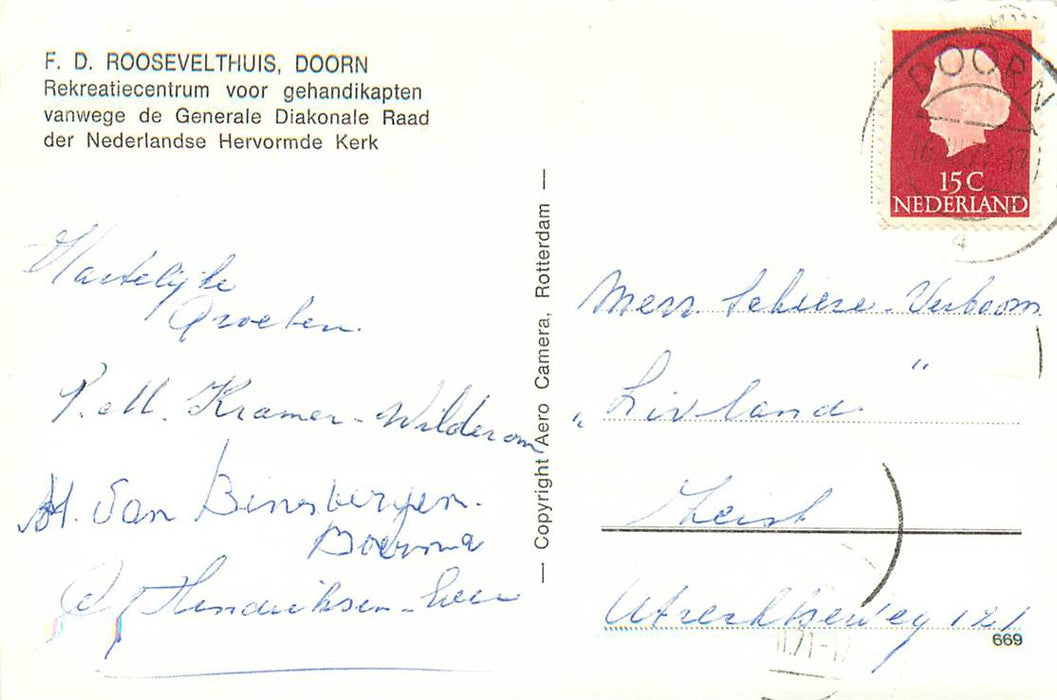 F. D. ROOSEVELTHUIS, DOORN
Rekreatiecentrum voor gehandikapten
vanwege de Generale Diakonale Raad
der Nederlandse Hervormde Kerk
Hartelijke
Groeten.
P. M. Kramer-Wilderom
H. van Binsbergen.
Boersma
Hendriksen-
— Copyright Aero Camera, Rotterdam —
DOORN
15 C
NEDERLAND
4
Mevr. Schiere-Verboom
„Livland"
Zeist
Utrechtseweg 121
669